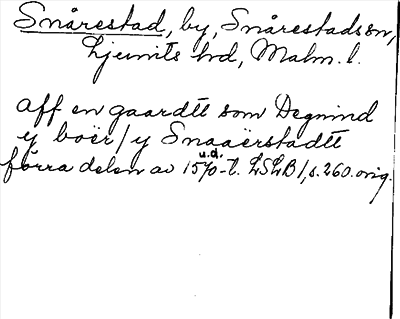 Snårestad, by, Snårestads sn,
Ljunits hd, Malm. l.
aff en gaardtt som Degnind
y boër / y Snaaërstadtt
förra delen av 1570-t. LSLB 1, s. 260. orig.
u.d.